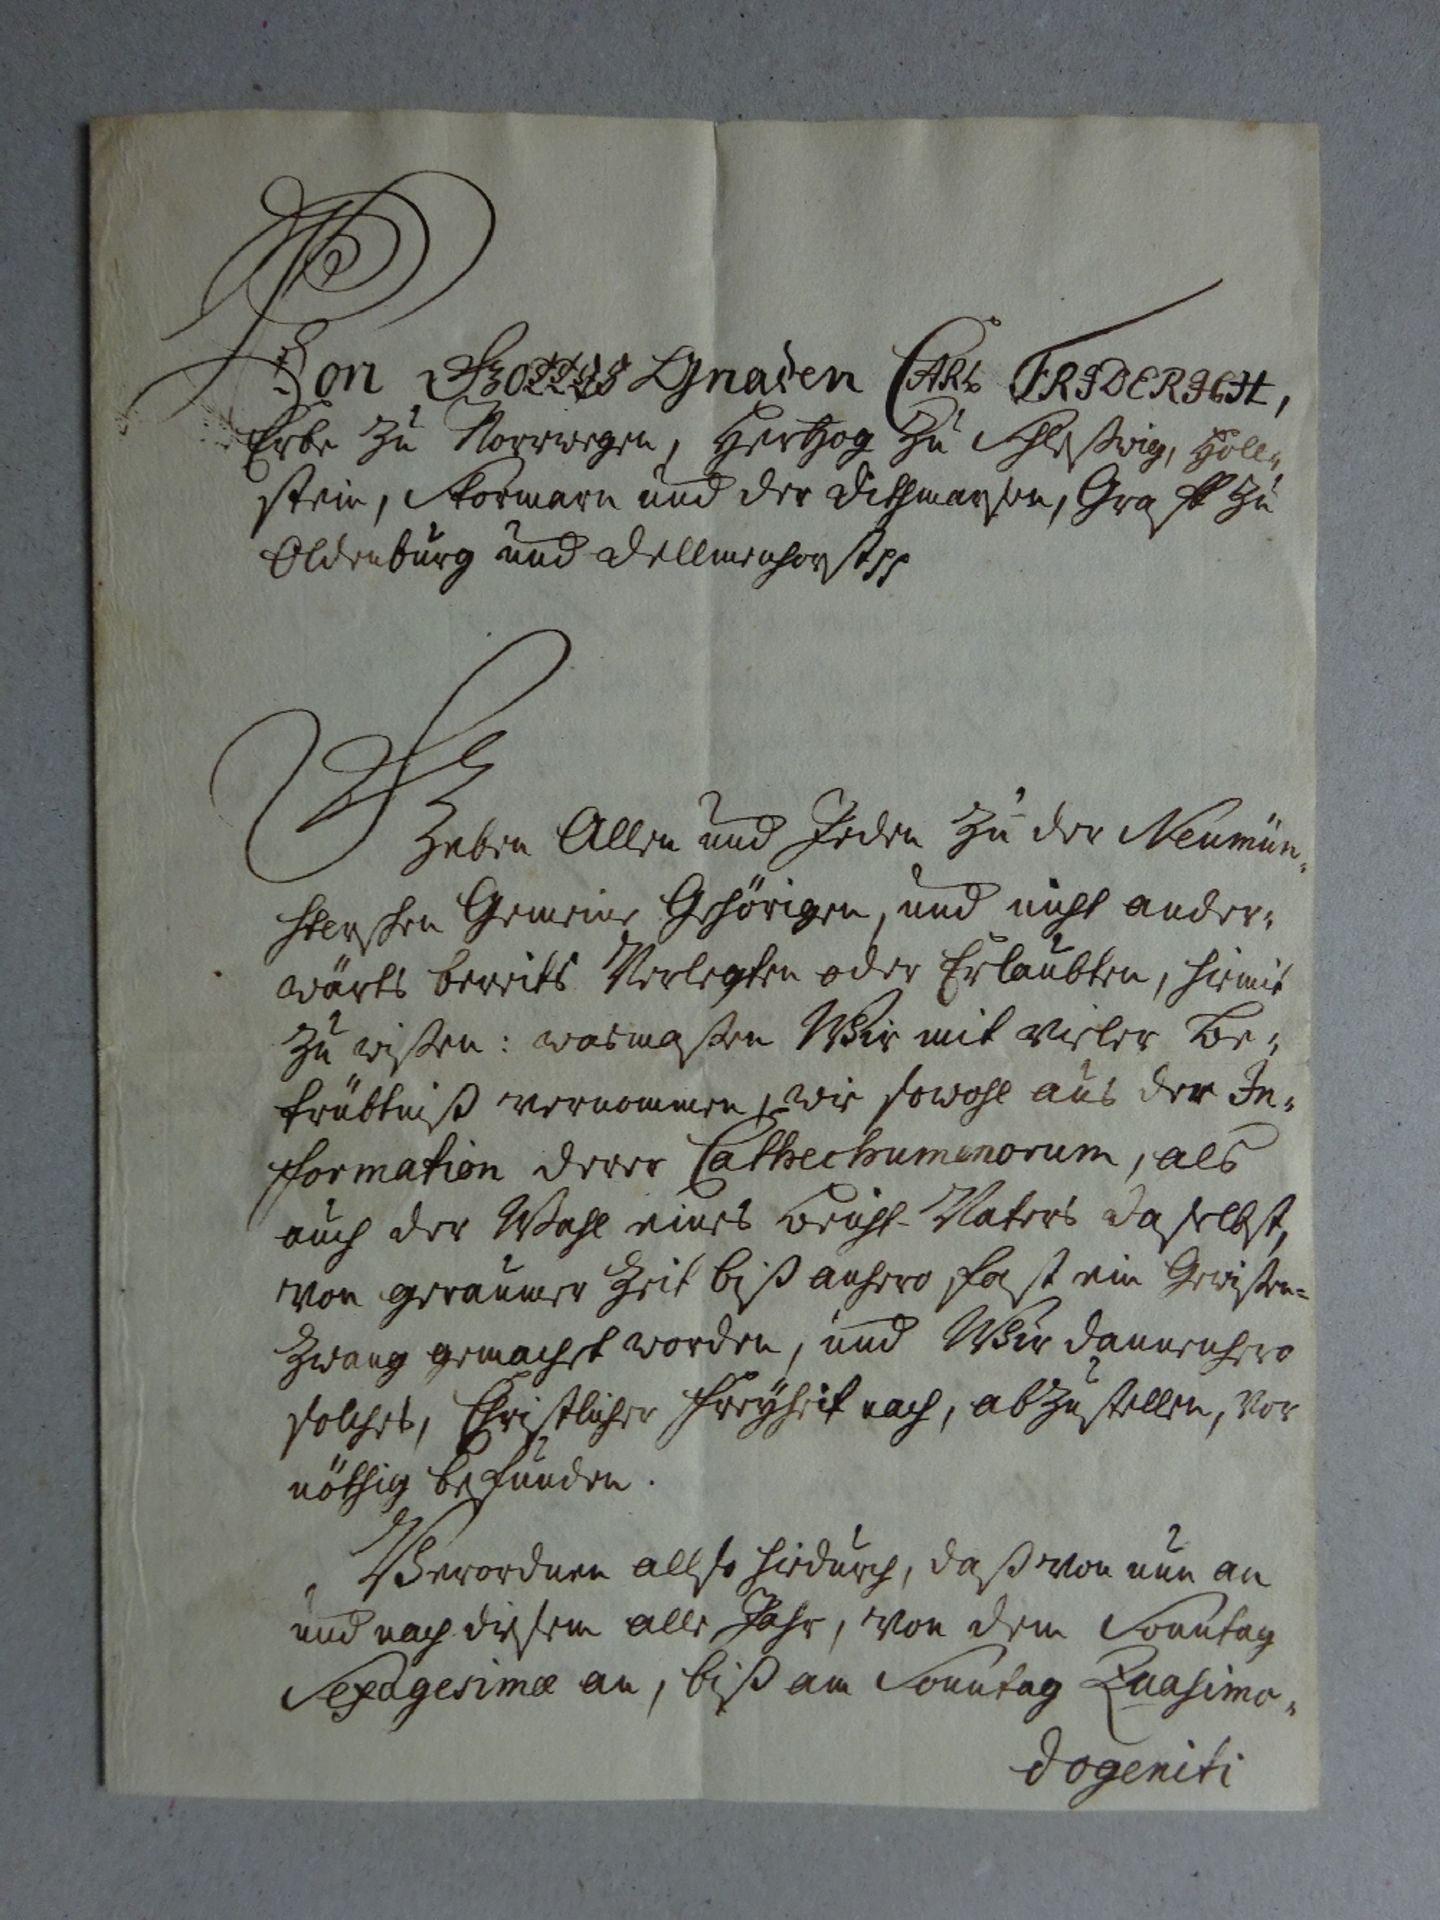 Von Gottes Gnaden Carl Friderich,
Erbe zu Norrwegen, Hertzog zu Schleßwig, Holl-
stein, Stormarn und der Dithmarsen, Graff zu
Oldenburg und Dellmenhorst pp
Geben Allen und Jeden zu der Neumün-
sterschen Gemeine Gehörigen, und nicht ander-
wärts bereits Verlegten oder Erlaubten, hiemit
zu wißen: wasmaßen Wir mit vieler Be-
trübtniß vernommen, wie sowohl aus der In-
formation derer Cathechumenorum, als
auch der Wahl eines Beicht-Vaters daselbst,
von geraumer Zeit biß anhero fast ein Gewißen-
Zwang gemachet worden, und Wir dannenhero
solches, Christlicher Freyheit nach, abzustellen, vor
nöthig befunden.
Verordnen allso hiedurch, daß von nun an
und nach diesem alle Jahr, von dem Sonntag
Sexagesimæ an, biß am Sonntag Quasimo-
dogeniti